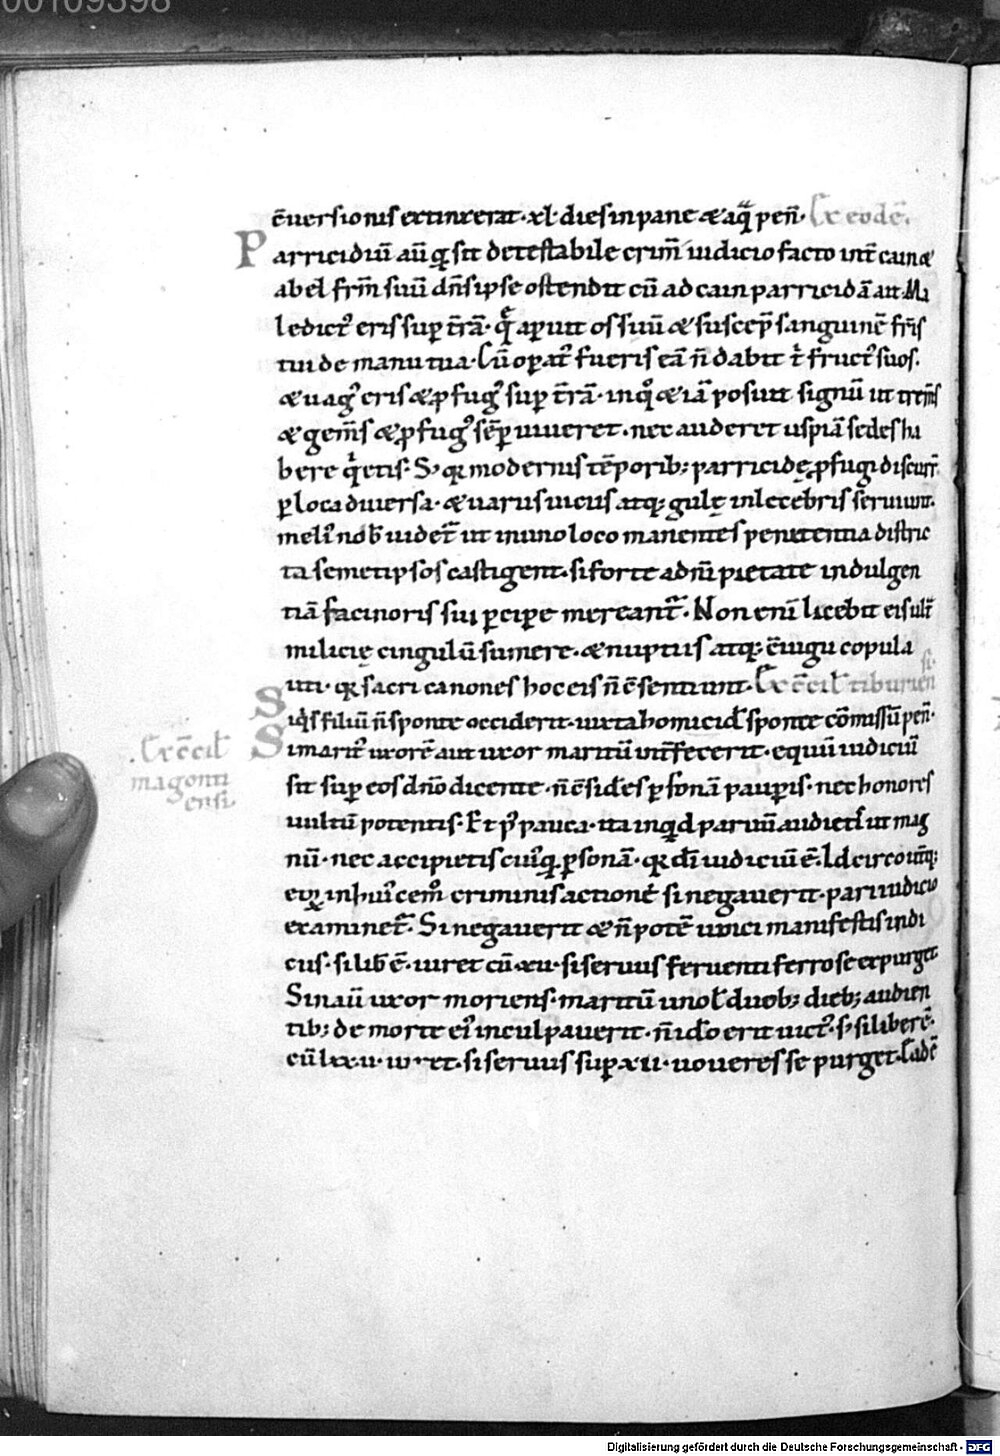 00109398
c̄uersionis extinxerat· xl· dies in pane & aq̄ pen̄· Ex eodē·
Parricidiū aū q̄ sit detestabile crim̄ iudicio facto int̄ cain &
abel fr̄m suū dn̄s ipse ostendit cū ad cain parricidā ait· Ma
ledict᷒ eris sup t̄rā· q̄ aperuit os suū & suscep̄ sanguinē fr̄is
tui de manu tua· Cū opat᷒ fueris eā n̄ dabit t̄ fruct᷒ suos·
& uag᷒ eris & ꝓfug᷒ sup t̄rā· in q̊ & iā posuit signū ut trem̄s
& gem̄s & ꝓfug᷒ sēp uiueret· nec auderet uspiā sedes ha
bere q̄etis· S; q̄ modernis tēporib; parricidę ꝓfugi discurr̄
ꝑ loca diuersa· & uariis uiciis atq; gulę inlecebris seruiunt·
meli᷒ nob̄ uidet̄ ut in uno loco manentes penitentia distric
ta semetipsos castigent· si forte a dn̄i pietate indulgen
tiā facinoris sui ꝑcipe mereant̄· Non enī licebit eis ult̄
milicię cingulū sumere· & nuptiis atq; c̄iugii copula
uti· q̄ sacri canones hoc eis n̄ c̄sentiunt· Ex c̄cil̄ tiburien
si·
Siq̄s filiū n̄ sponte occiderit· iuxta homicid̄ sponte cōmissū pen̄·
Si marit᷒ uxorē aut uxor maritū int̄fecerit· equū iudiciū
.Ex c̄cil̄
magonti
ensi·
sit sup eos dn̄o dicente· n̄ c̄sides ꝑsonā paupis· nec honores
uultū potentis· Et p᷒ pauca· ita inquid paruū audietis ut mag
nū· nec accipietis cui᷒q̄ ꝑsonā· q̄ dī iudiciū ē· Idcirco utq̄;
etx̄ in hui᷒cem̊ criminis actionē si negauerit· pari iudicio
examinet̄· Si negauerit & n̄ potē uinci manifestis indi
ciis· si lib̄ ē· iuret cū xii· si seruus feruenti ferro se expurget
Sin aū uxor moriens· maritū uno l̄ duob; dieb; audien
tib; de morte ei᷒ inculpauerit· n̄ id̄o erit uict᷒· s; si liber ē·
cū lxxii· iuret· si seruus sup xii· uomeres se purget· Ead̄ē
Digitalisierung gefördert durch die Deutsche Forschungsgemeinschaft - DFG